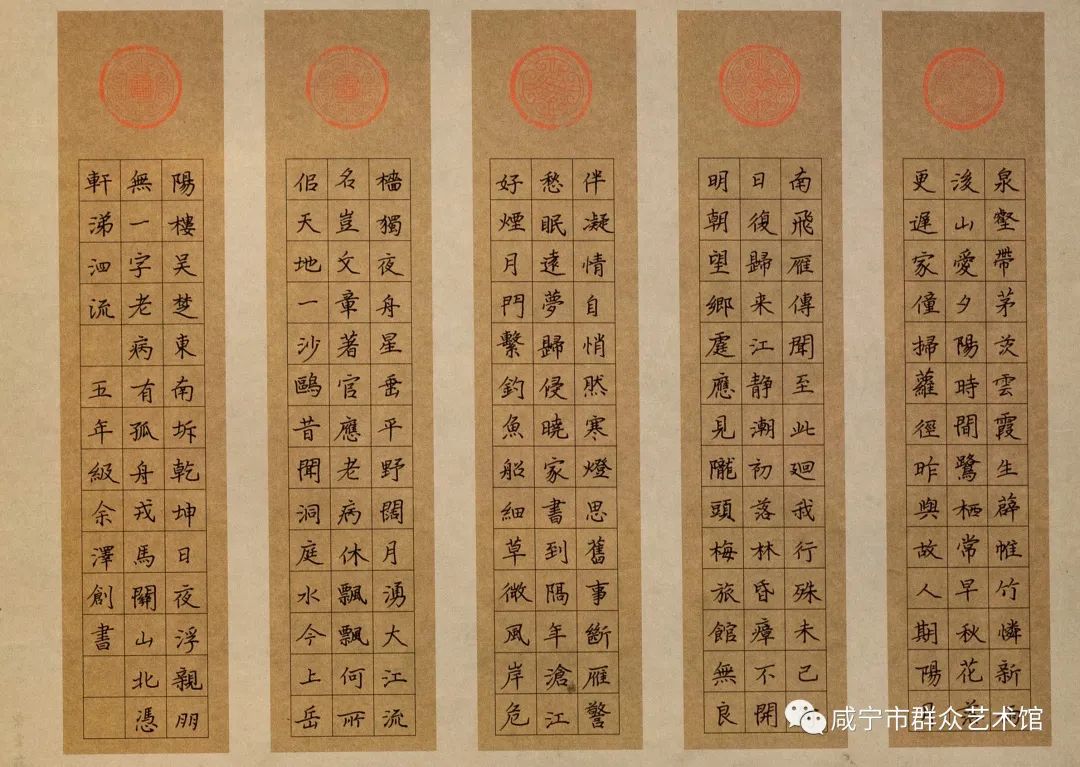 泉壑帶茅茨雲霞生薜帷竹憐新
後山愛夕陽時閒鷺栖常早秋花
更遲家僮掃蘿徑昨與故人期陽
南飛雁傳聞至此迴我行殊未已
日復歸来江静潮初落林昏瘴不開
明朝望鄉處應見隴頭梅旅館無良
伴凝情自悄然寒燈思舊事斷雁警
愁眠遠夢歸侵曉家書到隔年滄江
好煙月門繫釣魚船細草微風岸危
檣獨夜舟星垂平野闊月湧大江流
名豈文章著官應老病休飄飄何所
侣天地一沙鷗昔聞洞庭水今上岳
陽樓吴楚東南坼乾坤日夜浮親朋
無一字老病有孤舟戎馬關山北憑
軒涕泗流 五年級余澤創書
咸宁市群众艺术馆